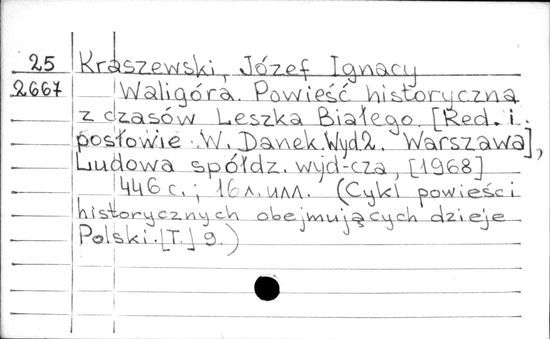 25 Kraszewski, Józef Ignacy
2667 Waligóra. Powieść historyczna
z czasów Leszka Białego. [Red. i.
posłowie W. Danek. Wyd 2. Warszawa],
Ludowa spółdz. wyd-cza, [1968]
446 с.; 16 л. илл. (Cykl powieści
historycznych obejmujących dzieje
Polski. [T.] 9.)